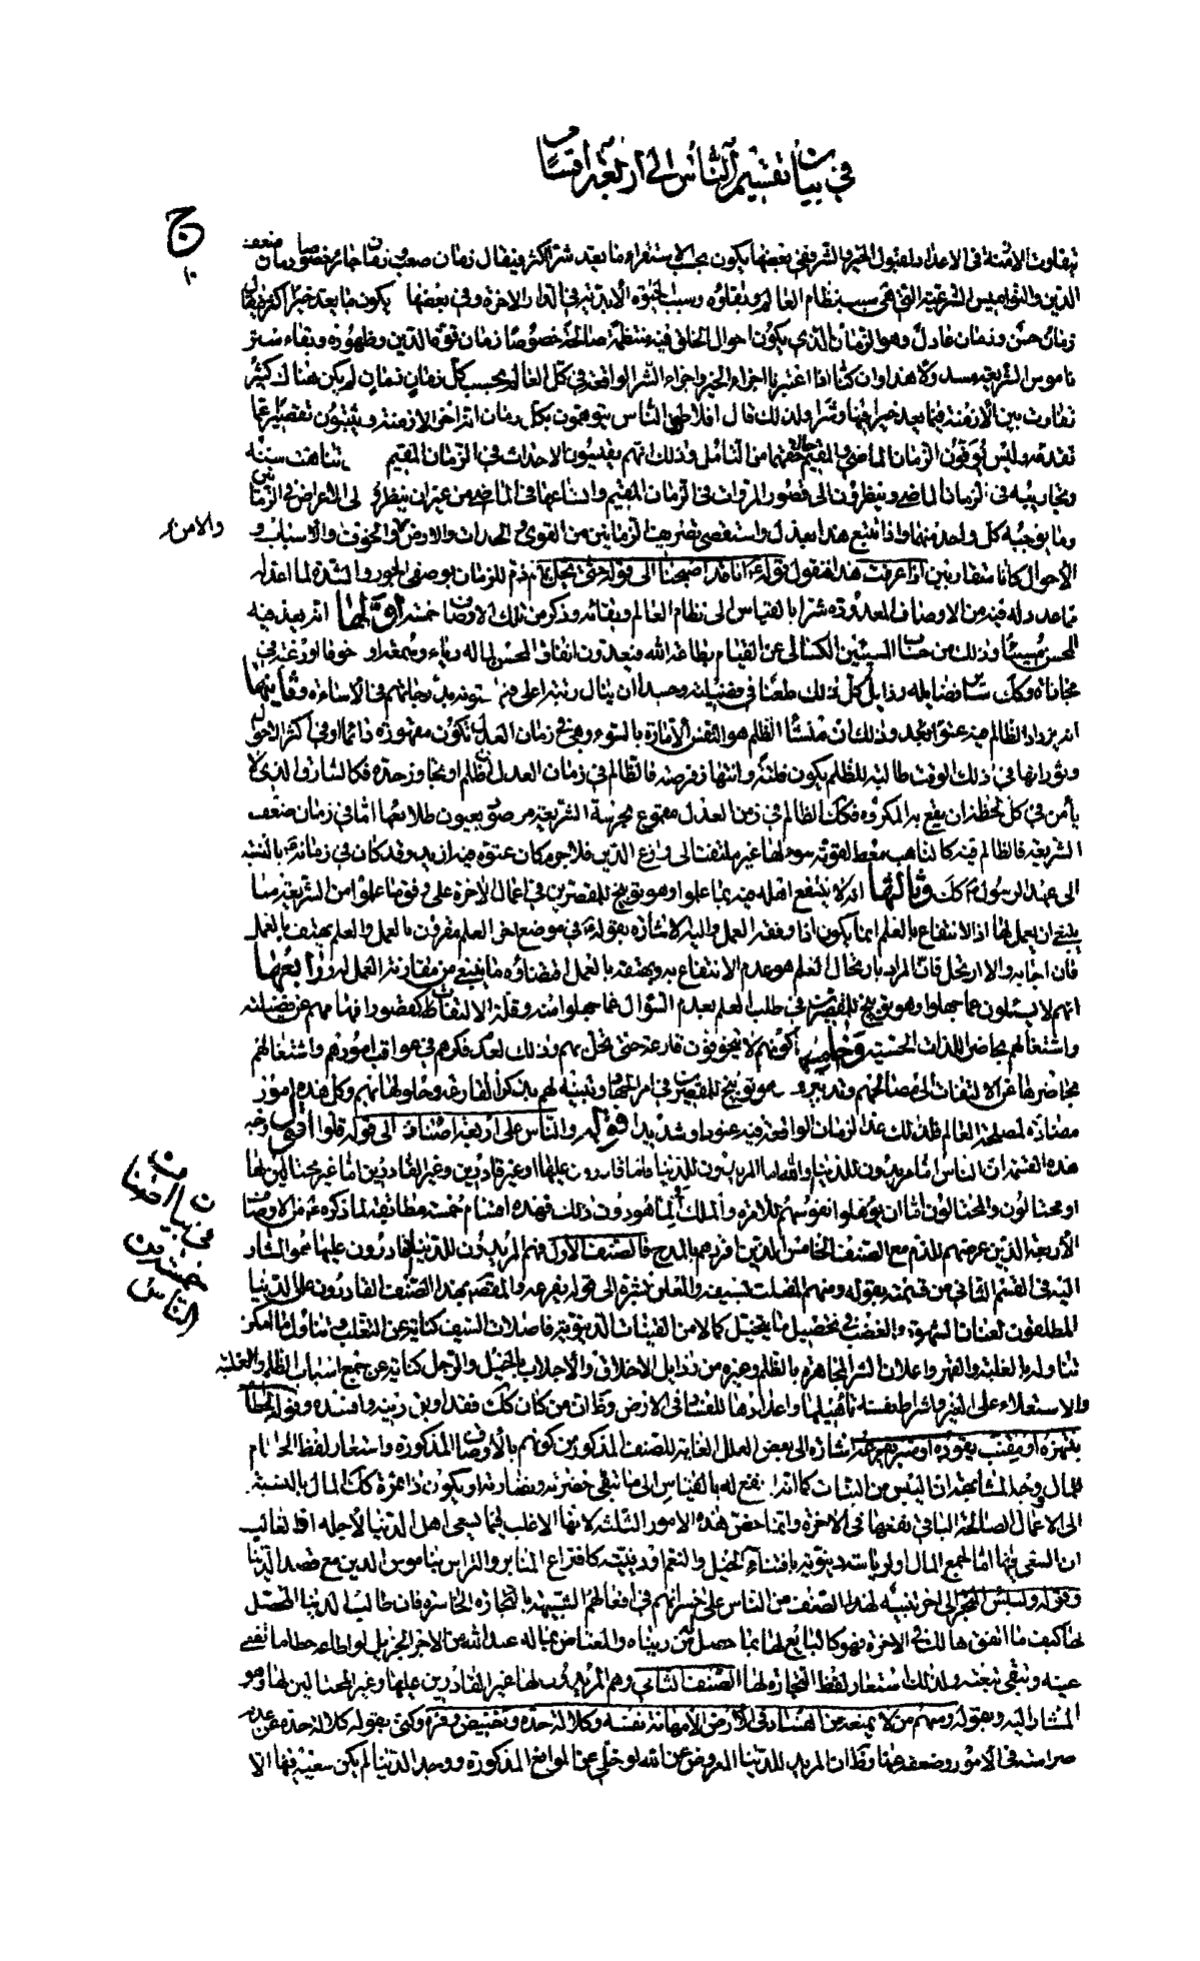 في بيان تقسيم الناس الى اربعة اقسام
ج
١٠
تتفاوت الازمنة في الاعداد لقبول الخير والشر ففي بعضها يكون بحسب الاستقراء ما يعد شرا اكثر فيقال زمان صعب وزمان جائر خصوصا زمان ضعف
الدين والنواميس الشرعية التي هي سبب نظام العالم وبقاؤه وسبب الحيوة الأبدية في الدار الاخرة وفي بعضها يكون ما يعد خيرا اكثر فيقال
زمان حسن وزمان عادل وهو الزمان الذي يكون احوال الخلق فيه منتظمة صالحة خصوصا زمان قوة الدين وظهوره وبقاء ستر
ناموس الشريعة مسدولا هذا وان كنا اذا اعتبرنا اجزاء الخير واجزاء الشر الواقعة في كل العالم بحسب كل زمان زمان لم يكن هناك كثير
تفاوت بين الأزمنة فيما يعد خيرا فيها وشرا ولذلك قال افلاطون الناس يتوهمون بكل زمان انه اخر الازمنة ويثبتون تقصيرا عما
تقدمه وليس يوفون الزمان الماضي والمقيم حقهما من التأمل وذلك انهم يقيسون الاحداث في الزمان المقيم تناهت سنه
وتجاربته في الزمان الماضي وينظرون الى قصور المروات في الزمان المقيم واتساعها في الماضي من غير ان ينظروا لى الاغراض في الزمانين
وما يوجبه كل واحد منهما واذا تتبع هذا بعدل واستقصي تصرف الزمانين من القوى والجدات والامن والخوف والأسباب و
والامن
الأحوال كانا متقاربين اذا عرفت هذا فنقول قوله انا قد اصبحنا الى قوله حتى تحل بهم ذم للزمان بوصفي الجور والشدة لما اعد له
ما عدد له فيه من الاوصاف المعدودة شرا بالقياس الى نظام العالم وبقائه وذكر من تلك الاوصاف خمسة اولها انه يعد فيه
المحسن مسيئا وذلك من حساب المسيئين الكسالى عن القيام بطاعة الله فيعدون انفاق المحسن لماله رياء وسمعة او خوفا او رغبة في
مجازاة وكك سائر فضايله رذايل كل ذلك طعنا في فضيلته وحسدا ان ينال رتبة اعلى منهم وثانيها
انه يزداد الظالم فيه عتوا وذلك ان منشأ الظلم هو النفس الأمارة بالسوء وهي في زمان العدل تكون مقهورة دائما او في اكثر الاحوال
وثورانها في ذلك الوقت طالبة للظلم يكون فلتة وانتهاز فرصة فالظالم في زمان العدل ان ظلم او تجاوز حده فكالسارق الذي لا
يأمن في كل لحظة ان يقع به المكروه فكك الظالم في زمن العدل مقموع بحرسة الشريعة مرصود بعيون طلائعها اما في زمان ضعف
الشريعة فالظالم فيه كالناهب معط لقوته سؤلها غير ملتفت الى وازع الدين فلا جرم كان عتوه فيه ازيد وقد كان في زمانه بالنسبة
الى عهد الرسول ص كك وثالثها انه لا ينتفع اهله فيه بما علموا وهو توبيخ للمقصرين في اعمال الاخرة على وفق ما علموا من الشريعة مما
ينبغي ان يعمل لها اذ الانتفاع بالعلم انما يكون اذا وفقه العمل واليه الاشارة بقوله في موضع اخر العلم مقرون بالعمل والعلم يهتف بالعمل
فان اجابه والا ارتحل فان المراد بارتحال العلم هو عدم الانتفاع به وبهتفه بالعمل اقتضاؤه ما ينبغي من مقارنة العمل له ورابعها
انهم لا يسئلون عما جهلوا وهو توبيخ للمقصرين في طلب العلم بعدم السؤال عما جهلوا منه وقلة الالتفات لقصور افهامهم عن فضيلته
واشتغالهم بحاضر اللذات الحسية وخامسها كونهم لا يتخوفون قارعة حتى تحل بهم وذلك لعدم فكرهم في عواقب امورهم واشتغالهم
بحاضرها عن الالتفات الى مصالحهم وتدبيرها وهو توبيخ للمقصرين في امر الجهاد وتنبيه لهم بذكر القارعة وحلولها بهم وكل هذه امور
مضادة لمصلحة العالم فلذلك عد الزمان الواقعة فيه عنودا وشديدا قوله والناس على اربعة اصناف الى قوله قلوا اقول وجه
هذه القسمة ان الناس اما مريدون للدنيا او لله والمريدون للدنيا فاما قادرون عليها او غير قادرين وغير القادرين اما غير محتالين لها
في بيان اصناف
خمسة من
الناس
او محتالون والمحتالون اما ان يؤهلوا نفوسهم للامرة والملك او لما هو دون ذلك فهذه اقسام خمسة مطابقة لما ذكره ع من الاوصاف
الأربعة الذين عرضهم للذم مع الصنف الخامس الذين افردهم بالمدح فالصنف الاول فهم المريدون للدنيا القادرون عليها فهو المشار
اليه في القسم الثاني من قسمته بقوله ومنهم المصلت لسيفه والمعلن بشره الى قوله يفرعه والمقصود بهذا الصنف القادرون على الدنيا
المطلقون لعنان الشهوة والغضب في تحصيل ما يتخيل كمالا من القينات الدنيوية فاصلات السيف كناية عن التغلب وتناول ما امكن
تناوله بالغلبة والقهر واعلان الشر المجاهرة بالظلم وغيره من رذايل الاخلاق والأجلاب بالخيل والرجل كناية عن جمع اسباب الظلم والغلبة
والاستعلاء على الغير واشراط نفسه تأهيلها واعدادها للفساد في الارض وظ ان من كان كك فقد اوبق دينه وافسده وقوله لحطام
ينتهزه او مقنب يقوده او منبر يفرعه اشارة الى بعض العلل الغائية للصنف المذكورين كونهم بالأوصاف المذكورة واستعار لفظ الحطام
للمال ووجه المشابهة ان اليبس من النبات كما انه نفع له بالقياس الى ما تبقى خضرته ونضارته او يكون ذا ثمرة كك المال بالنسبة
الى الاعمال الصالحة الباقي نفعها في الاخرة وانما خص هذه الامور الثلثة لانها الاغلب فيما يسعى اهل الدنيا لأجله اذ الغالب
ان السعي فيها اما لجمع المال او لرياسة دنيوية باقتناء الخيل والنعم او دينية كافتراع المنابر والترأس بناموس الدين مع قصد الدنيا
وقوله ولبئس المتجر الى اخره تنبيه لهذا الصنف من الناس على خسرانهم في افعالهم الشبيهة بالتجارة الخاسرة فان طالب الدنيا المحصل
لها كيف ما اتفق هالك في الاخرة فهو كالبائع لها بما حصل من دنياه والمعتاض بما له عند الله من الاجر الجزيل لو اطاعه حطاما تفنى
عينه وتبقى تبعته ولذلك استعار لفظ التجارة لها الصنف الثاني وهم المريدون لها غير القادرين عليها وغير المحتالين لها وهو
المشار اليه بقوله ومنهم من لا يمنعه من الفساد في الأرض الا مهانة نفسه وكلالة حده ونضيض وفره وكنى بقوله كلالة حده عن عدم
صرامته في الأمور وضعفه عنها وظ ان المريد للدنيا المعرض عن الله لو خلي عن الموانع المذكورة ووجد الدنيا لم يكن سعيه فيها الا